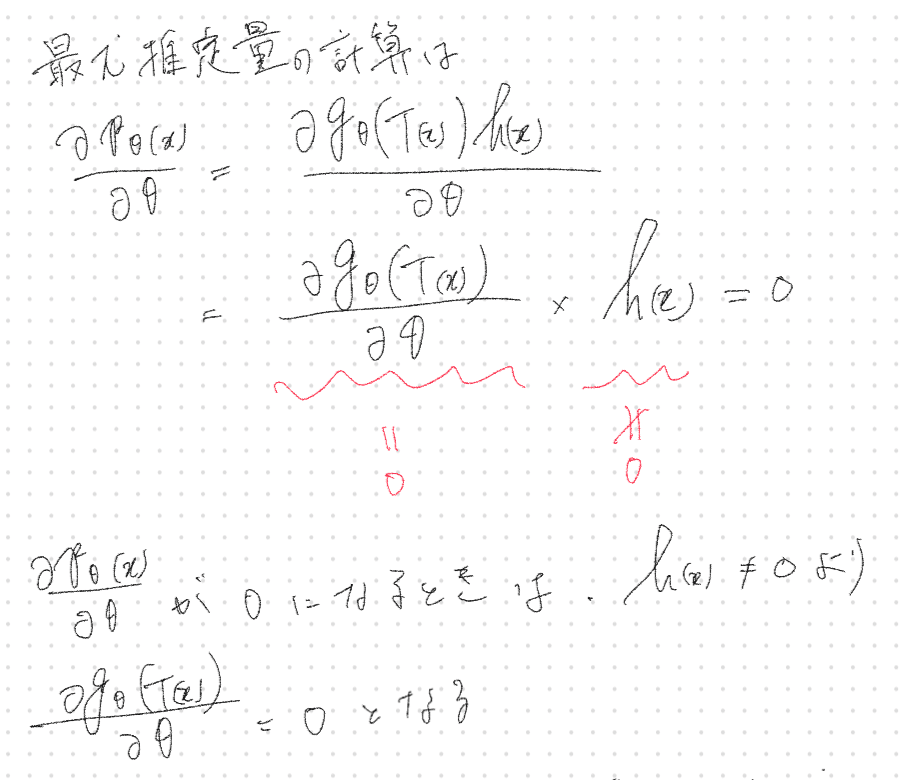 最尤推定量の計算は
∂Pθ(x)/∂θ = ∂gθ(T(x))h(x)/∂θ
= ∂gθ(T(x))/∂θ × h(x) = 0
= 0 ≠ 0
∂Pθ(x)/∂θ が 0 になるときは、h(x) ≠ 0 より
∂gθ(T(x))/∂θ = 0 となる